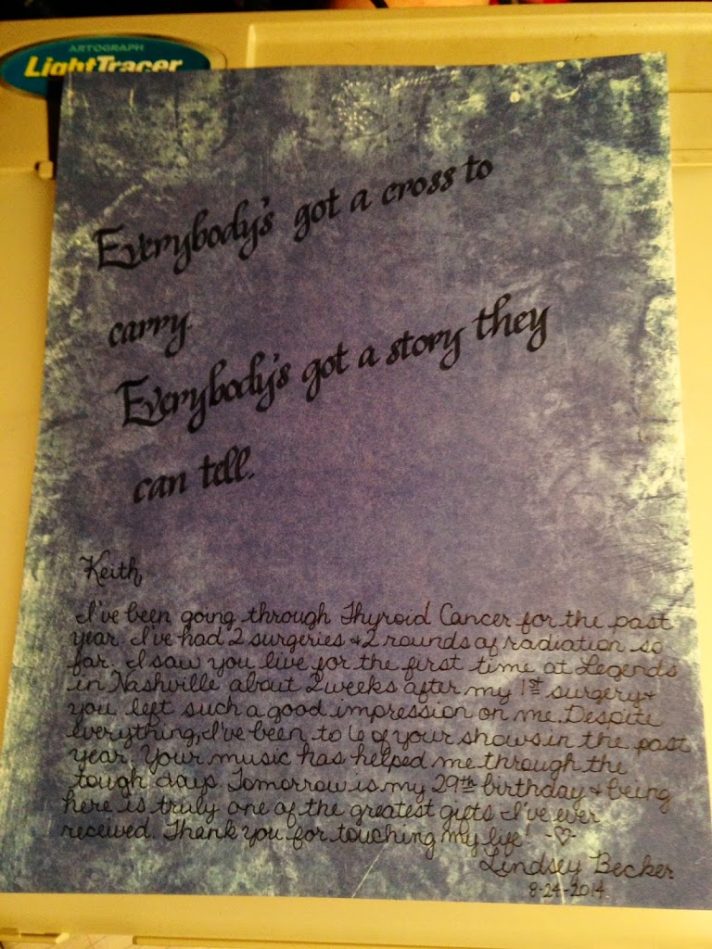 ARTOGRAPH
LightTracer
Everybody's got a cross to
carry.
Everybody's got a story they
can tell.
Keith,
I've been going through Thyroid Cancer for the past
year. I've had 2 surgeries + 2 rounds of radiation so
far. I saw you live for the first time at Legends
in Nashville about 2 weeks after my 1st surgery +
you left such a good impression on me. Despite
everything, I've been to 6 of your shows in the past
year. Your music has helped me through the
tough days. Tomorrow is my 29th birthday + being
here is truly one of the greatest gifts I've ever
received. Thank you for touching my life! -♡-
Lindsey Becker
8-24-2014